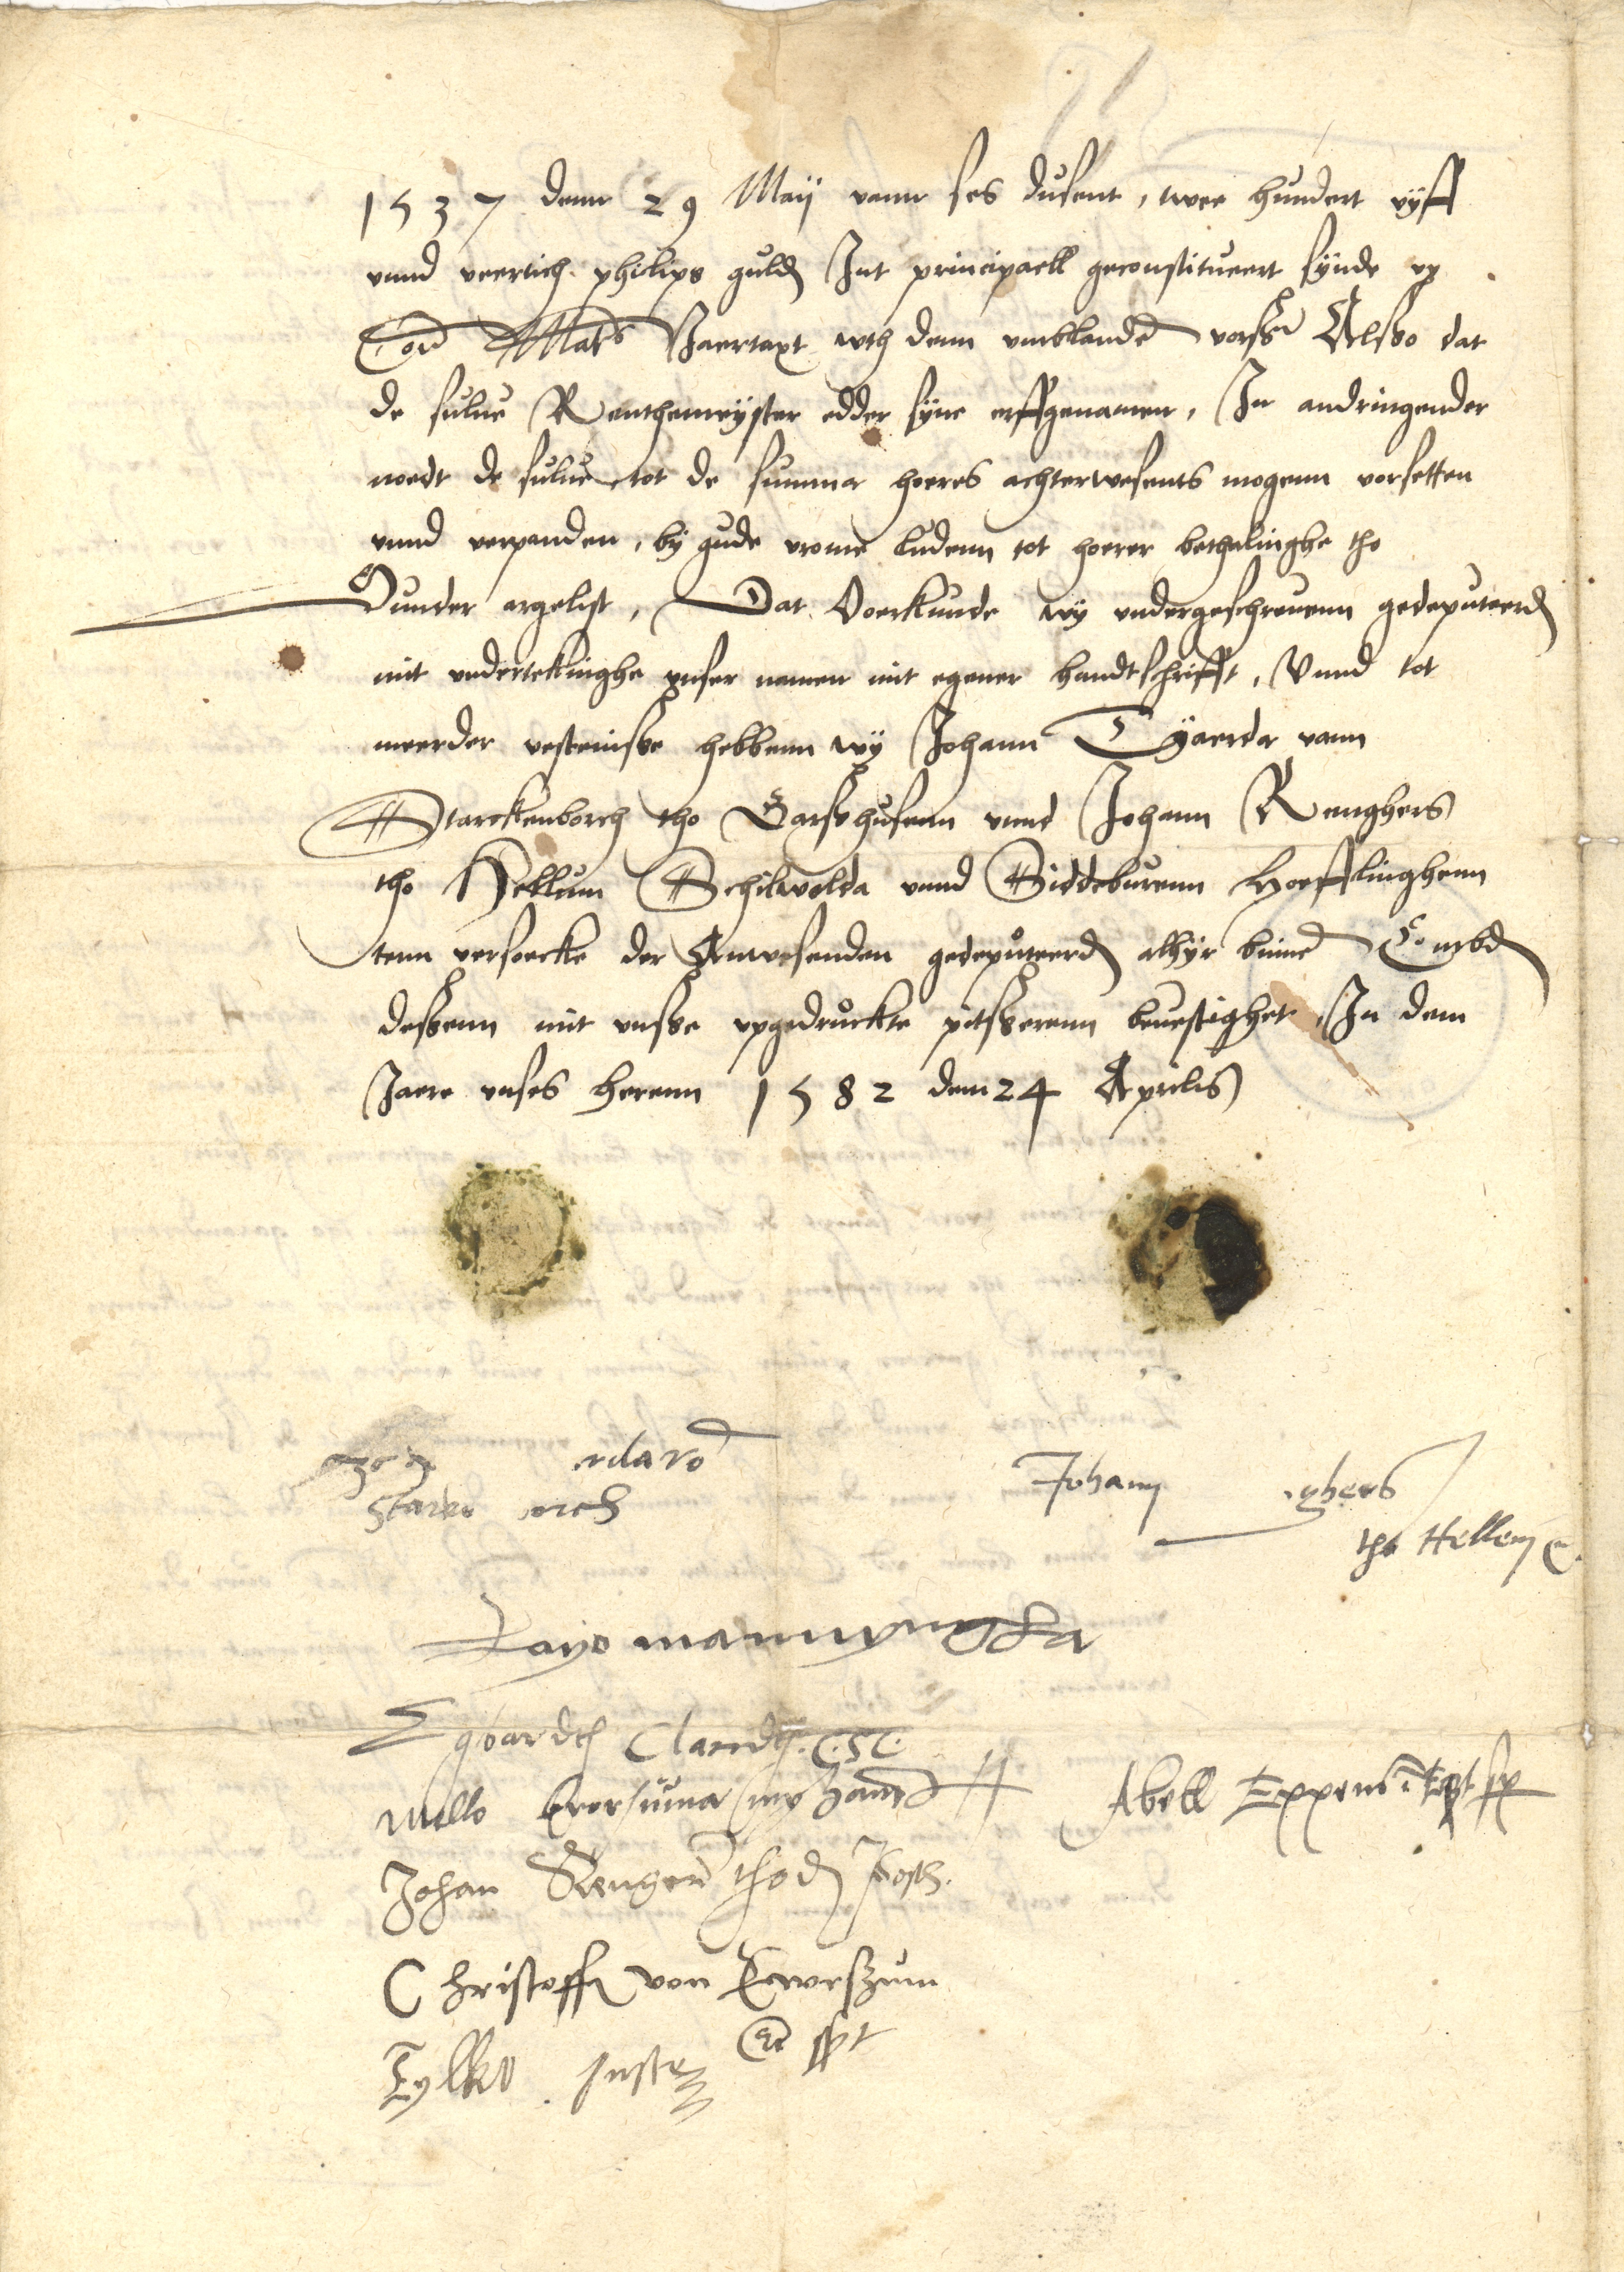 1537 denn 29 Maij vann ses dusent, twee hundert vijff
vnnd veertich philips guld Int principaell geconstitueert sijnde vp
Co: Mats Jaertaxt wth denn vmblande vorss Alsso dat
de sulue Renthemeijster edder sijne erffgenamen, In andringender
noedt de sulue tot de summa hoeres achterwesents mogenn vorsetten
vnnd verpanden, bij gude vrome ludenn tot hoerer bethalinghe tho
Sunder argelist, Dat Oerkunde wij vndergeschreuenn gedeputeerd
mit vndertekinghe vnser namen mit egener handtschrifft, Vnnd tot
meerder vestenisse hebbenn wij Johann Tijaerda vann
Starckenborch tho Garsshusenn vnnd Johann Renghers
tho Hellum Schilwolda vnnd Siddeburenn Hoefflinghenn
tenn versoecke der Anwesenden gedeputeerd alhijr binne Embd
dessenn mit vnsse vpgedruckte pitsserenn beuestighet, In dem
Jaere vnses herenn 1582 dem 24 Aprilis
Starke orch
Johann ghers
tho Hellem
Hayo mannyngha
Egbardth Clandth
Mello Broersuma myn handt
Abell Eppens
Johan Renger tho d Post
Christoffer von Ewerszum
Tylko spt